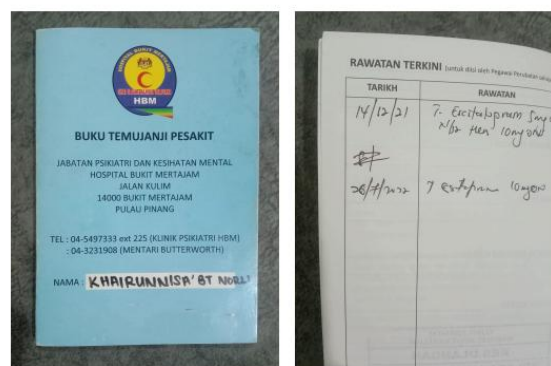 HOSPITAL BUKIT MERTAJAM
HBM
BUKU TEMUJANJI PESAKIT
JABATAN PSIKIATRI DAN KESIHATAN MENTAL
HOSPITAL BUKIT MERTAJAM
JALAN KULIM
14000 BUKIT MERTAJAM
PULAU PINANG
TEL : 04-5497333 ext 225 (KLINIK PSIKIATRI HBM)
: 04-3231908 (MENTARI BUTTERWORTH)
NAMA : KHAIRUNNISA' BT
RAWATAN TERKINI (untuk diisi oleh Pegawai Perubatan
TARIKH RAWATAN
14/12/21 T. Escitalopram 5mg
10mg
26/7/2022 T 10mg